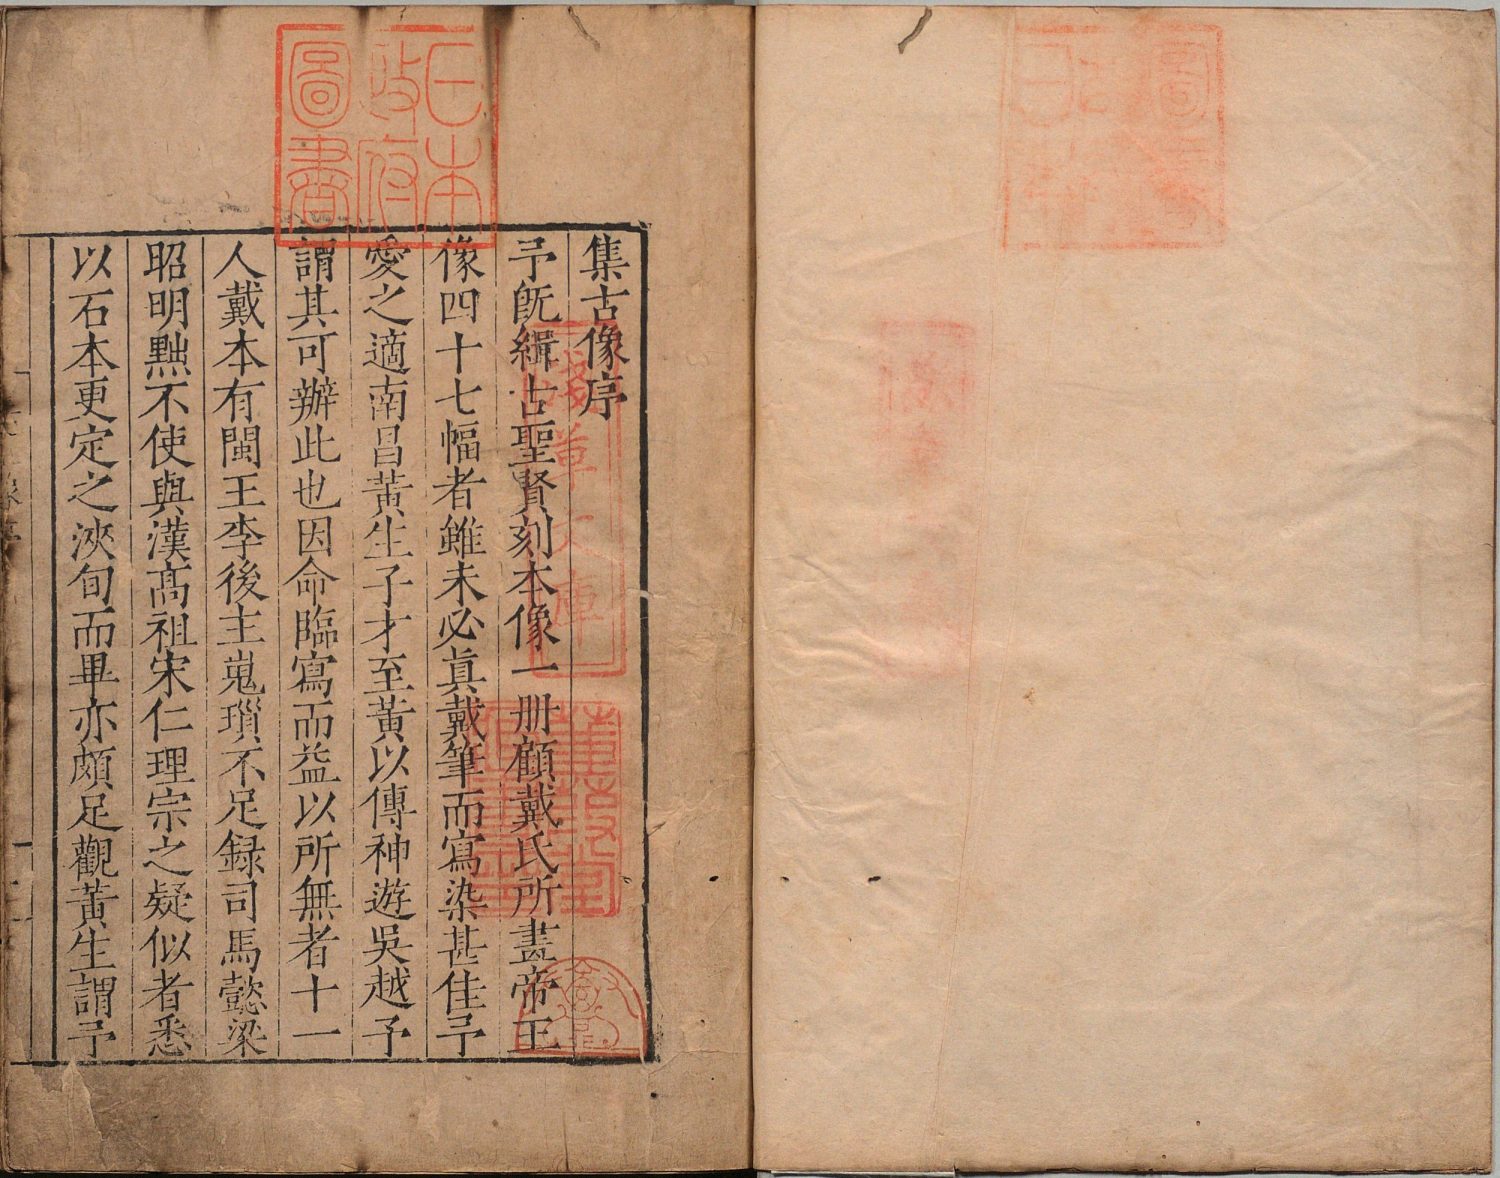 集古像序
予旣緝古聖賢刻本像一册顧戴氏所畫帝王
像四十七幅者雖未必眞戴筆而寫染甚佳予
愛之適南昌黃生子才至黃以傳神遊吳越予
謂其可辦此也因命臨寫而益以所無者十一
人戴本有閩王李後主嵬瑣不足録司馬懿梁
昭明㸃不使與漢高祖宋仁理宗之疑似者悉
以石本更定之浹旬而畢亦頗足觀黃生謂予
日本
政府
圖書
淺草文庫